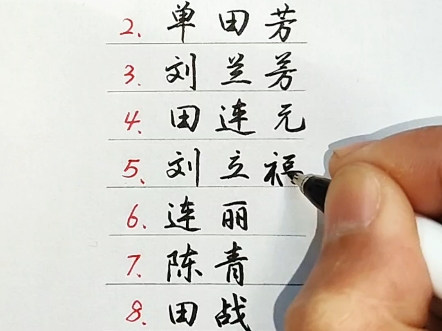 2、单田芳
3、刘兰芳
4、田连元
5、刘立福
6、连丽
7、陈青
8、田战